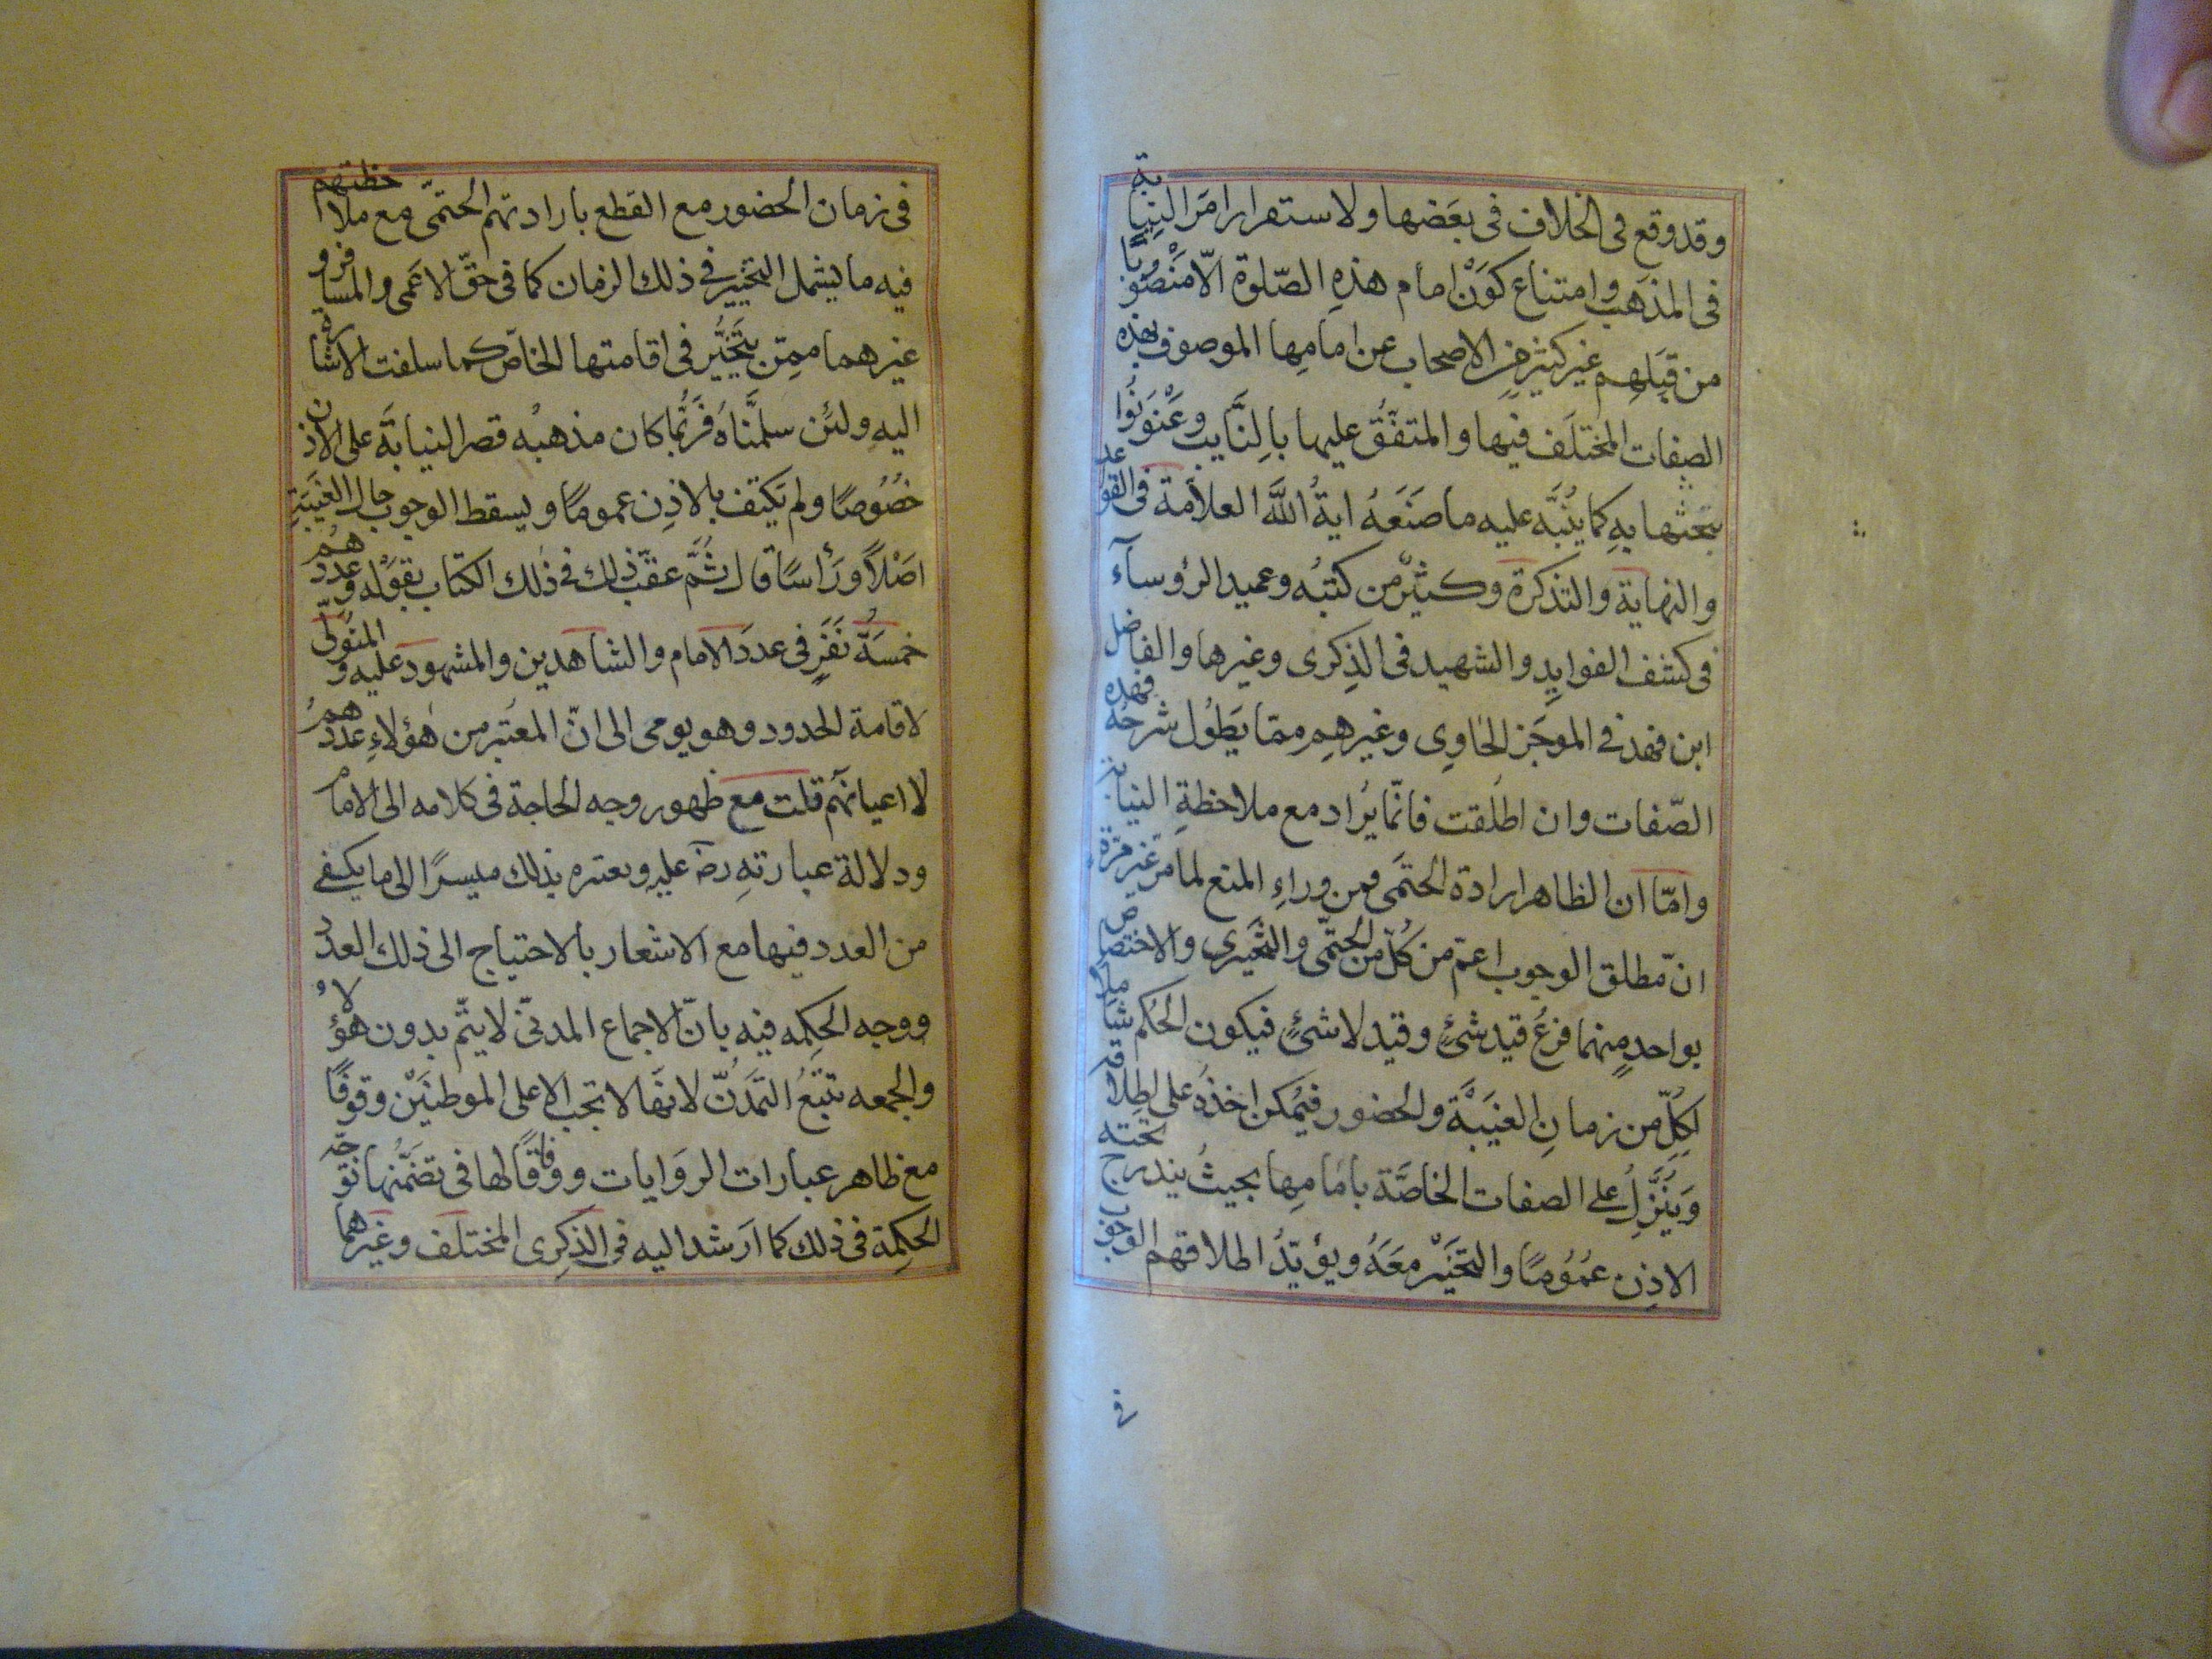 وقد وقع فى الخلاف فى بعَضها ولاستقرار امَر النِيابة
فى المذهب وامتناع كَوَنْ امام هذهِ الصّلوة الّا مَنْصُوبًا
من قِبَلِهِم غير كثيرٍ من الاصحاب عن امامِها الموصوف بهذه
الصفات المختلَف فيها والمتفَقُ عليها بالِنَّايب وعَنْوَنُوا
بحثها بهِ كما يُنَبَّه عليه ما صَنَعَهُ ايةُ اللَّه العلاّمة فى القواعد
والنهاية والتذكرة وكثيرٌ من كتبُه وعميد الرؤساۤء
فى كشف الفوايدِ والشهيد فى الذِكرى وغيرها والفاضل
ابن فهد فى الموجَز الحاوِى وغيرهِم ممّا يَطُول شرحُه فهذه
الصّفات وان اطلُقت فانّما يُراد مع ملاحظةِ النيابة
وامّا ان الظاهر ارادة الحتمَى فمن وراءِ المنع لما مرّ غير مرّة
انّ مطلق الوجوب اعمّ من كُلّ من الحتمّى والتخيرى والاختصاص
بواحدٍ منِهما فرعُ قيد شئٍ وقيد لا شئٍ فيكون الحُكم شاملًا
لكِلّ من زمانِ الغَيبَة والحضور فيُمكن اخذُه على اطِلاقه
وَيُنَزَّلُ على الصفات الخاصَّة بامَامِها بحيثُ يندرج تحته
الاذِن عمُوُمًا والتخَيْر معَهُ ويؤيّدُ اطلاقهم الوجوب
فى
فى زمان الحضور مع القطع بارادتهم الحتمّى ومع ملاحظتهم
فيه ما يشمل التخيير فى ذلك الزمان كما فى حقّ الاعَمى والمسافر و
غيرهما ممّن يتَخَيَّر فى اقامتها الخاصّ كما سلفت الاشارة
اليهِ ولئن سلمّنَاهُ فرُبَّما كان مذهبُه قصر النيابَة على الاذن
خصُوُصًا ولم يَكتف بالاذِن عمومًا ويسقط الوجوب حال الغَيبَةِ
اصَلاً ورَأسًا قال ثُمَّ عقّب ذلك فى ذلك الكتاب بقوَله وعَدَدُهُم
خمسَةُ نَفَرٍ فى عددَ الامام والشاهدين والمشهود عليه والمتُولّى
لاقامة الحدود وهو يومى الى انّ المعُتبر من هٰؤلاءِ عدَدُهُم
لا اعيانهُم قلت مع ظهور وجه الحاجة فى كلامه الى الامام
ودلالة عبارتهِ رضۤ عليهِ وبعتره بذلك ميسرًا الى ما يكفى
من العدد فيها مع الاشعار بالاحتياج الى ذلك العدد
ووجه الحكِمه فيه بانّ الاجماع المدنىّ لا يتّم بدون هؤلاء
والجمعه تتبَعُ التمَدُنّ لانهّا لا تجب الا على الموطنيَنْ وقوفًا
مع ظاهر عبارات الروَايات ووفاقًا لها فى تضَمّنُها توجّه
الحكِمة فى ذلك كما ارَشد اليه فى الذكِرى المختلَف وغيَرهما